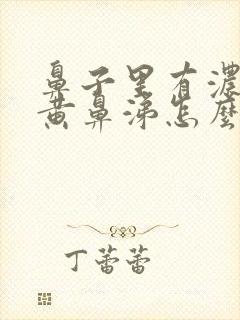 鼻子里有濃
黄鼻涕怎麽
丁蕾蕾